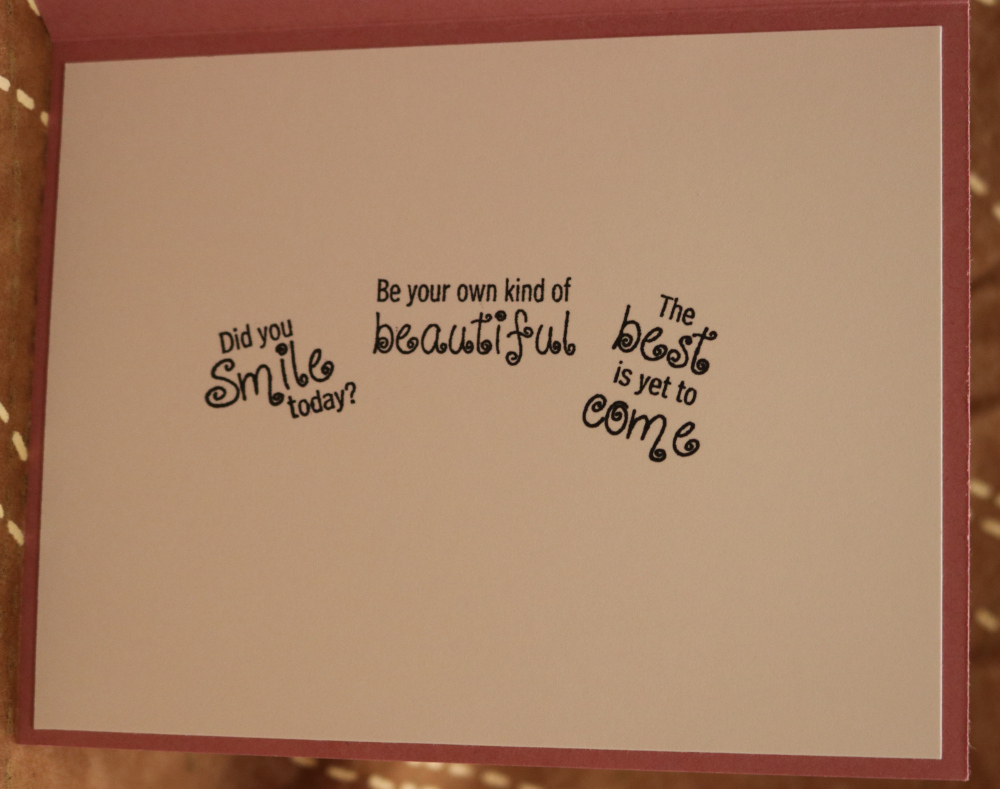 Did you
Smile
today?
Be your own kind of
beautiful
The
best
is yet to
come